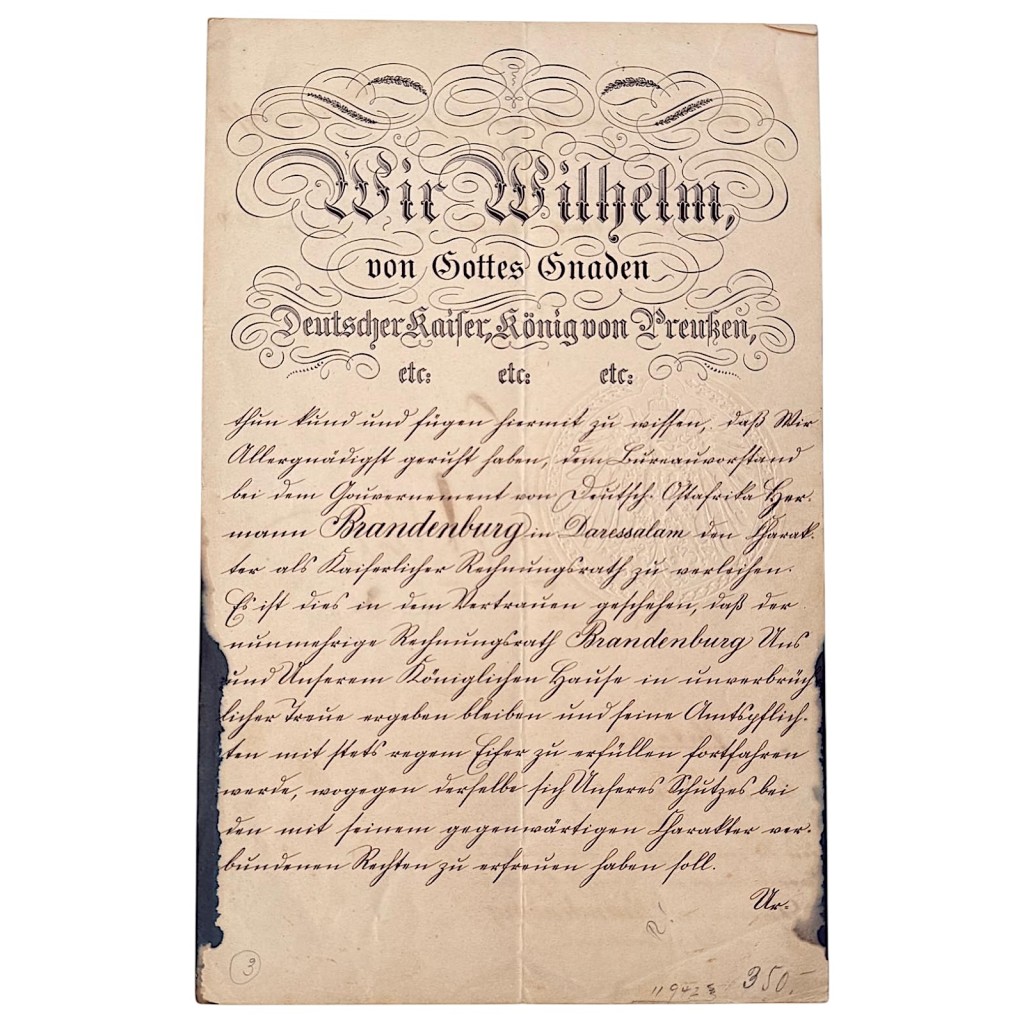 Wir Wilhelm,
von Gottes Gnaden
Deutscher Kaiser, König von Preußen,
etc: etc: etc:
thun kund und fügen hiermit zu wissen, daß Wir
Allergnädigst geruht haben, dem Bureauvorstand
bei dem Gouvernement von Deutsch-Ostafrika Her-
mann Brandenburg in Daressalam den Charak-
ter als Kaiserlicher Rechnungsrath zu verleihen.
Es ist dies in dem Vertrauen geschehen, daß der
nunmehrige Rechnungsrath Brandenburg Uns
und Unserem Königlichen Hause in unverbrüch-
licher Treue ergeben bleiben und seine Amtspflich-
ten mit stets regem Eifer zu erfüllen fortfahren
werde, wogegen derselbe sich Unseres Schutzes bei
den mit seinem gegenwärtigen Charakter ver-
bundenen Rechten zu erfreuen haben soll.
Ur-
3
350.-